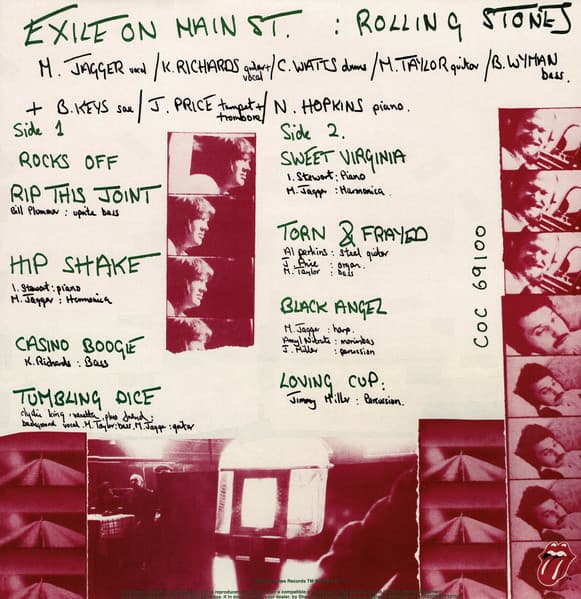 EXILE ON MAIN ST. : ROLLING STONES
M. JAGGER vocal / K. RICHARDS guitar + vocal / C. WATTS drums / M. TAYLOR guitar / B. WYMAN bass.
+ B. KEYS sax / J. PRICE trumpet + trombone / N. HOPKINS piano.
Side 1
ROCKS OFF
RIP THIS JOINT
Bill Plummer : uprite bass
HIP SHAKE
I. Stewart : piano
M. Jagger : Harmonica
CASINO BOOGIE
K. Richards : Bass
TUMBLING DICE
clydie king : vanetta plus friend :
background vocal. M. Taylor : bass. M. Jagger : guitar
Side 2.
SWEET VIRGINIA
I. Stewart : Piano
M. Jagger : Harmonica.
TORN & FRAYED
Al perkins : steel guitar
J. Price : organ.
M. Taylor : bass
BLACK ANGEL
M. Jagger : harp.
Amyl Nitrate : marimbas
J. Miller : percussion
LOVING CUP :
Jimmy Miller : Percussion.
COC 69100
Records TM